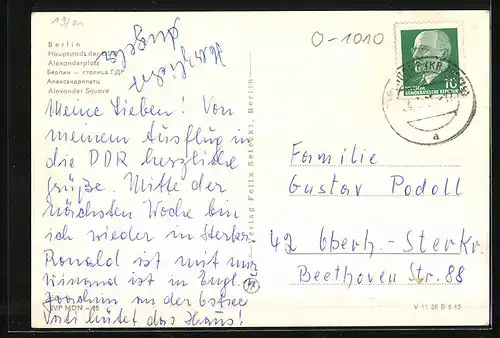 19/01
Berlin
Hauptstadt der
Alexanderplatz
Берлин — столица ГДР
Александерплатц
Alexander Square
O-1010
10
DEUTSCHE DEMOKRATISCHE REPUBLIK
a
Meine Lieben! Von
meinem Ausflug in
die DDR herzliche
Grüße. Mitte der
nächsten Woche bin
ich wieder in Sterkr.
Ronald ist mit mir
ist in Engl.
an der Ostsee
Vati hütet das Haus!
Verlag Felix Setecki, Berlin
Familie
Gustav Podoll
42 Oberh.-Sterkr.
Beethoven Str. 88
EVP MDN —,25
V 11 28 B 6 65